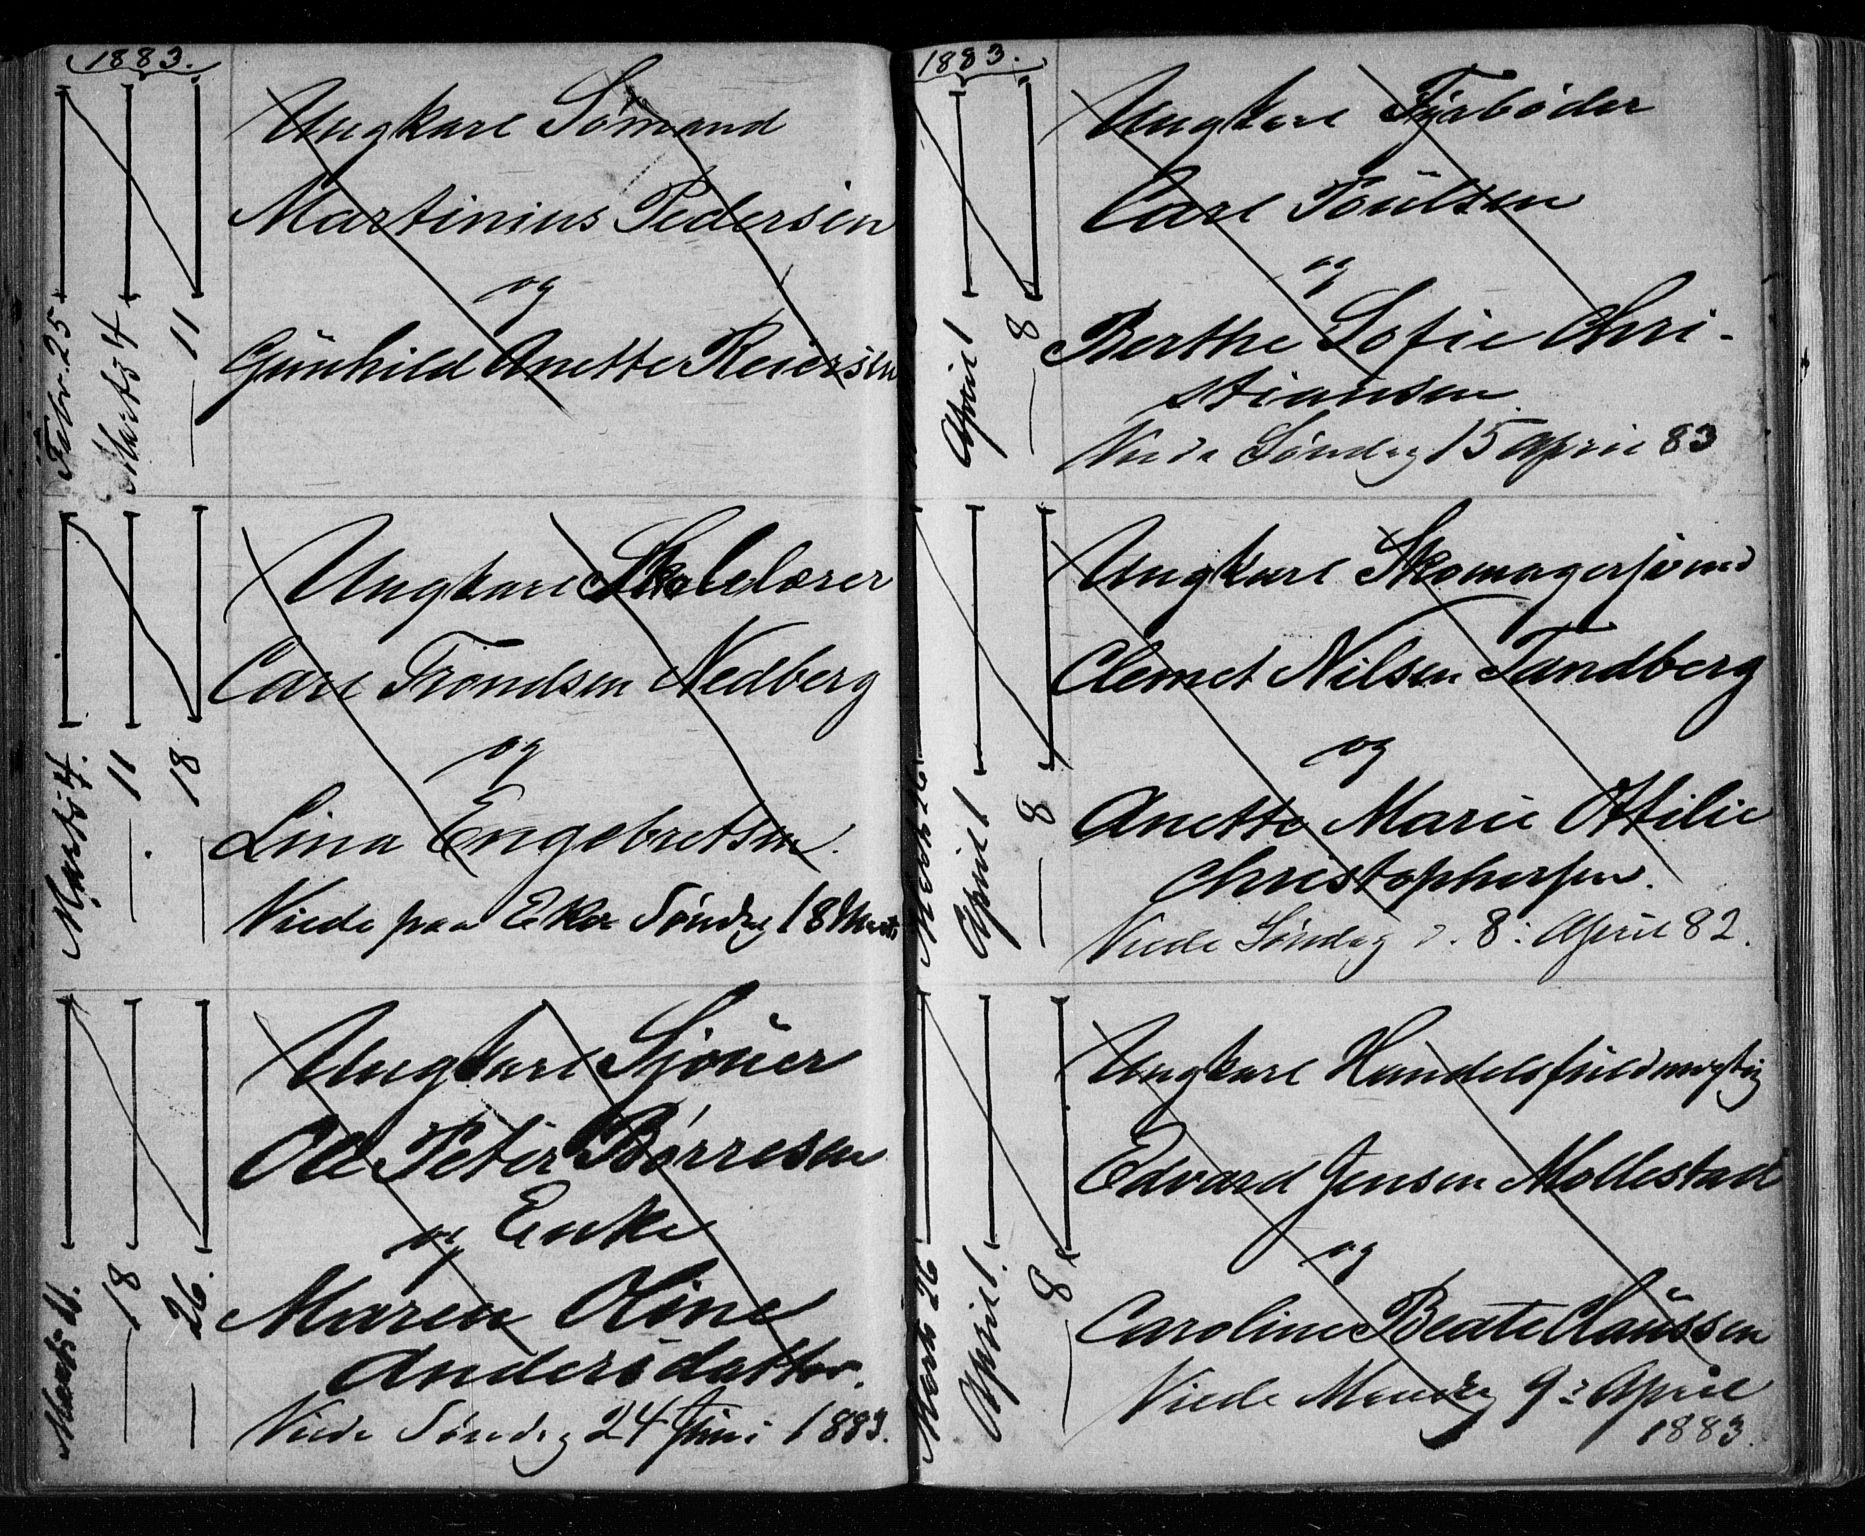 1883.
Febr. 25
Marts 4
— 11
Ungkarl Sømand
Martinius Pedersen
og
Gunhild Anette Reiersen
Marts 4.
— 11
— 18
Ungkarl Skolelærer
Carl Trondsen Nedberg
og
Lina Engebretsen.
Viede paa Eker Søndag 18 Marts
Marts 11.
— 18
— 26.
Ungkarl Sjöuer
Ole Peter Børresen
og Enke
Maren Oline
Andersdatter.
Viede Søndag 24 Juni 1883.
1883.
April 1
— 8
Ungkarl Fyrbøder
Carl Poulsen
og
Berthe Sofie Chri-
stiansen.
Viede Søndag 15 April 83
Marts 26
April 1
— 8
Ungkarl Skomagersvend
Clemet Nilsen Tandberg
og
Anette Marie Ottilie
Christophersen.
Viede Søndag d. 8: April 82.
Marts 26
April 1.
— 8
Ungkarl Handelsfuldmægtig
Edvard Jensen Mollestad
og
Caroline Beate Claussen
Viede Mandag 9: April
1883.